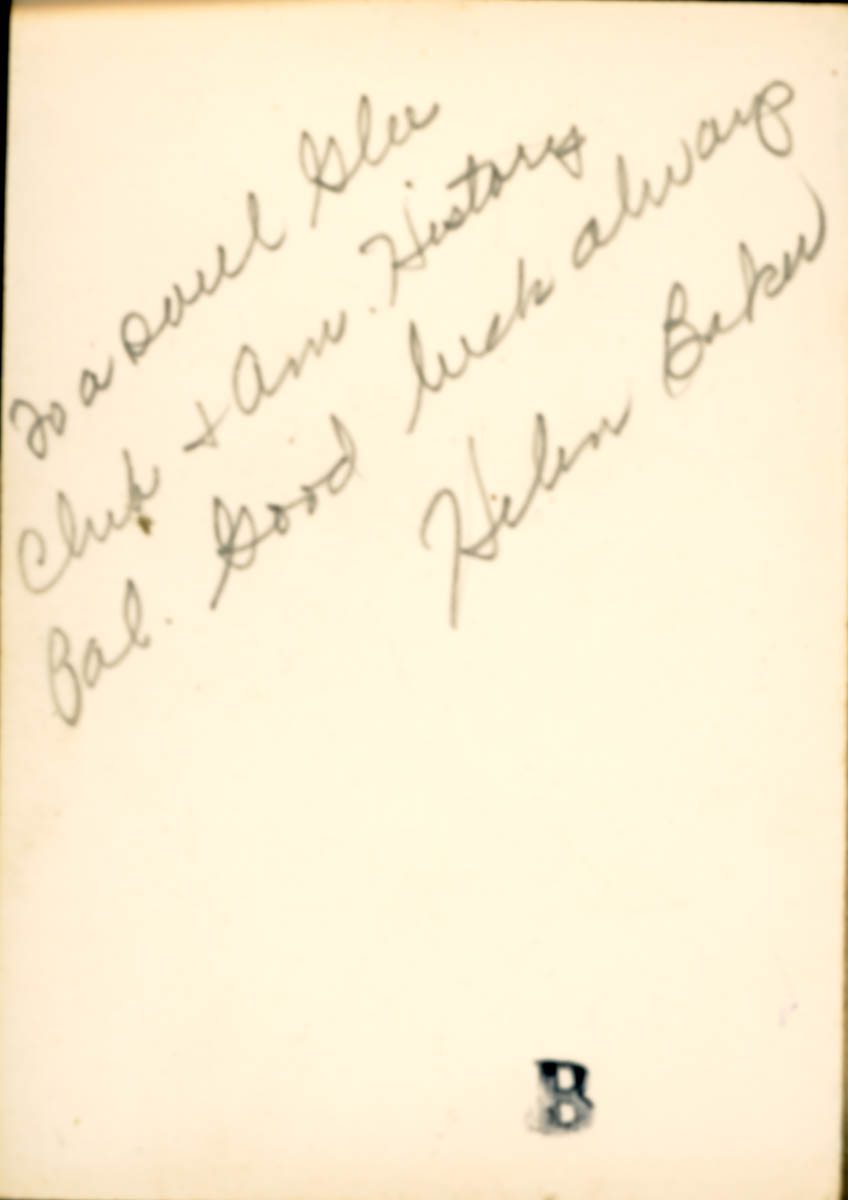 To a swell Glee
Club + Am. History
Pal. Good luck always
Helen Baker
B